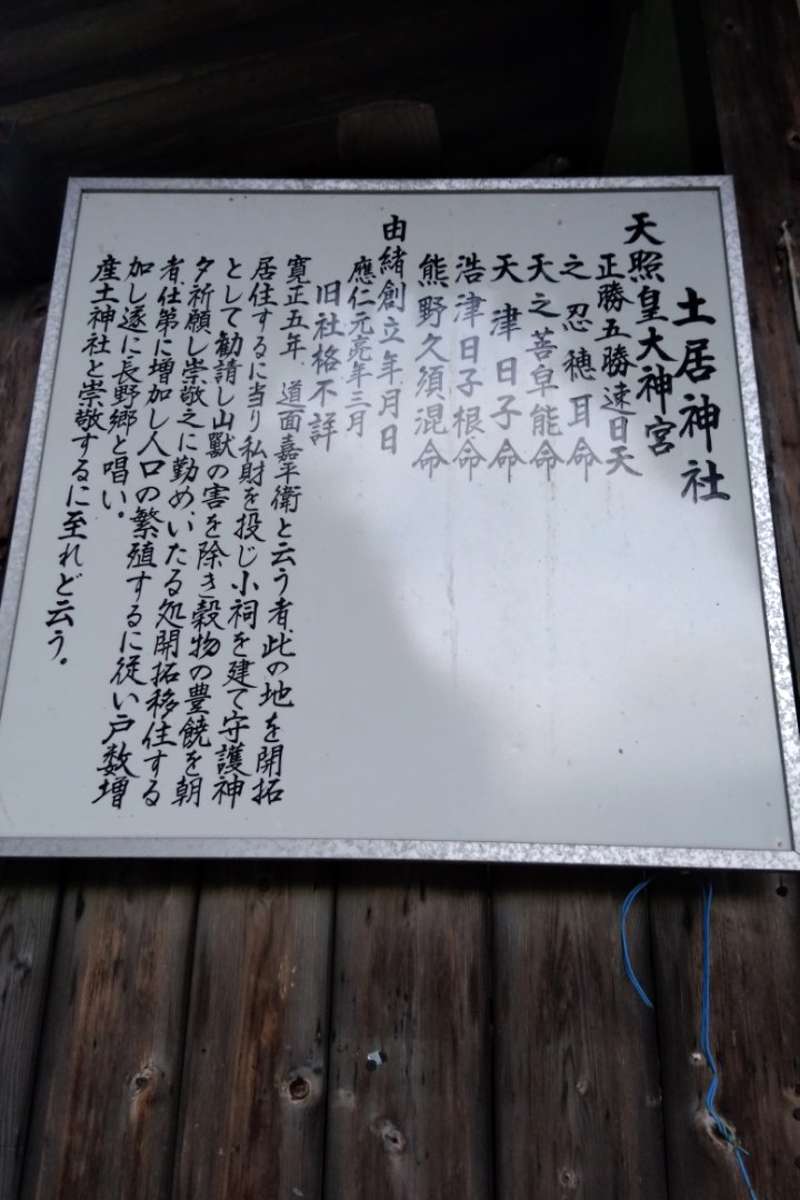 土居神社
天照皇大神宮
正勝五勝速日天
之忍穂耳命
天之菩卑能命
天津日子命
浩津日子根命
熊野久須混命
由緒創立年月日
應仁元亮年三月
旧社格不詳
寛正五年 道面嘉平衛と云う者此の地を開拓
居住するに当り私財を投じ小祠を建て守護神
として勧請し山獣の害を除き穀物の豊饒を朝
夕祈願し崇敬之に勤めいたる処開拓移住する
者仕第に増加し人口の繁殖するに従い戸数増
加し遂に長野郷と唱い。
産土神社と崇敬するに至れど云う。